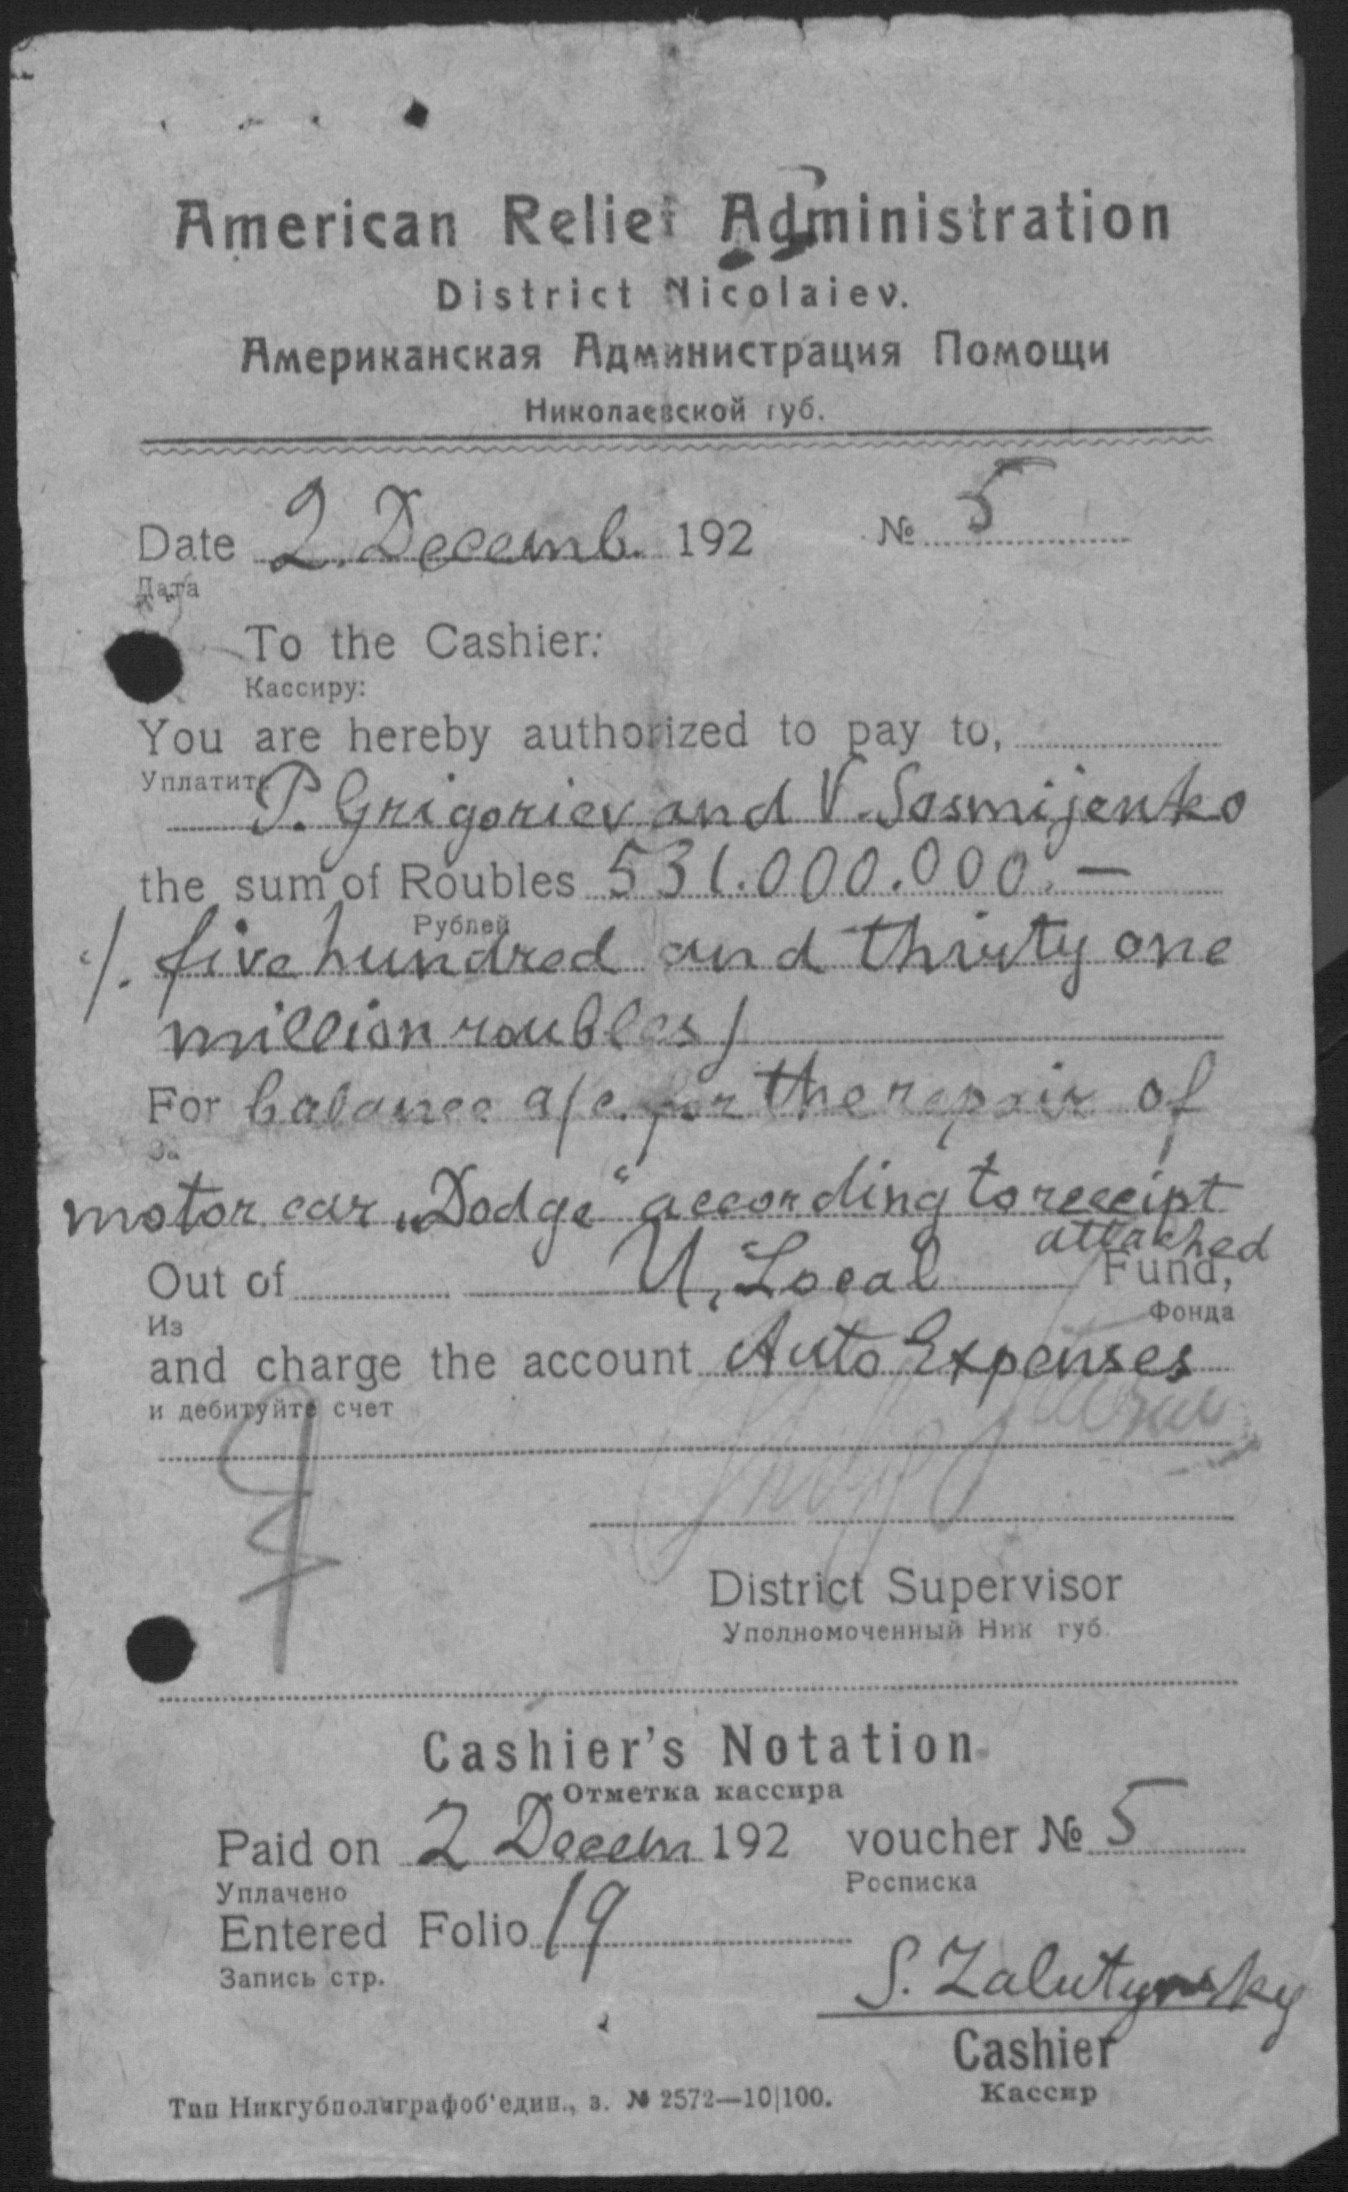 American Relief Administration
District Nicolaiev.
Американская Администрация Помощи
Николаевской губ.
Date 2. Decemb. 192 № 5
Дата
To the Cashier:
Кассиру:
You are hereby authorized to pay to,
Уплатите
P. Grigoriev and V. Sosmijenko
the sum of Roubles 531.000.000.—
Рублей
/. five hundred and thirty one
million roubles/
For balance a/c. for the repair of
За
motor car „Dodge“ according to receipt
attached
Out of U, Local Fund,
Из Фонда
and charge the account Auto Expenses
и дебитуйте счет
District Supervisor
Уполномоченный Ник губ.
Cashier's Notation
Отметка кассира
Paid on 2 Decem 192 voucher № 5
Уплачено Росписка
Entered Folio 19
Запись стр.
S. Zalutynsky
Cashier
Кассир
Тип Никгубполиграфоб'един., з. № 2572—10|100.